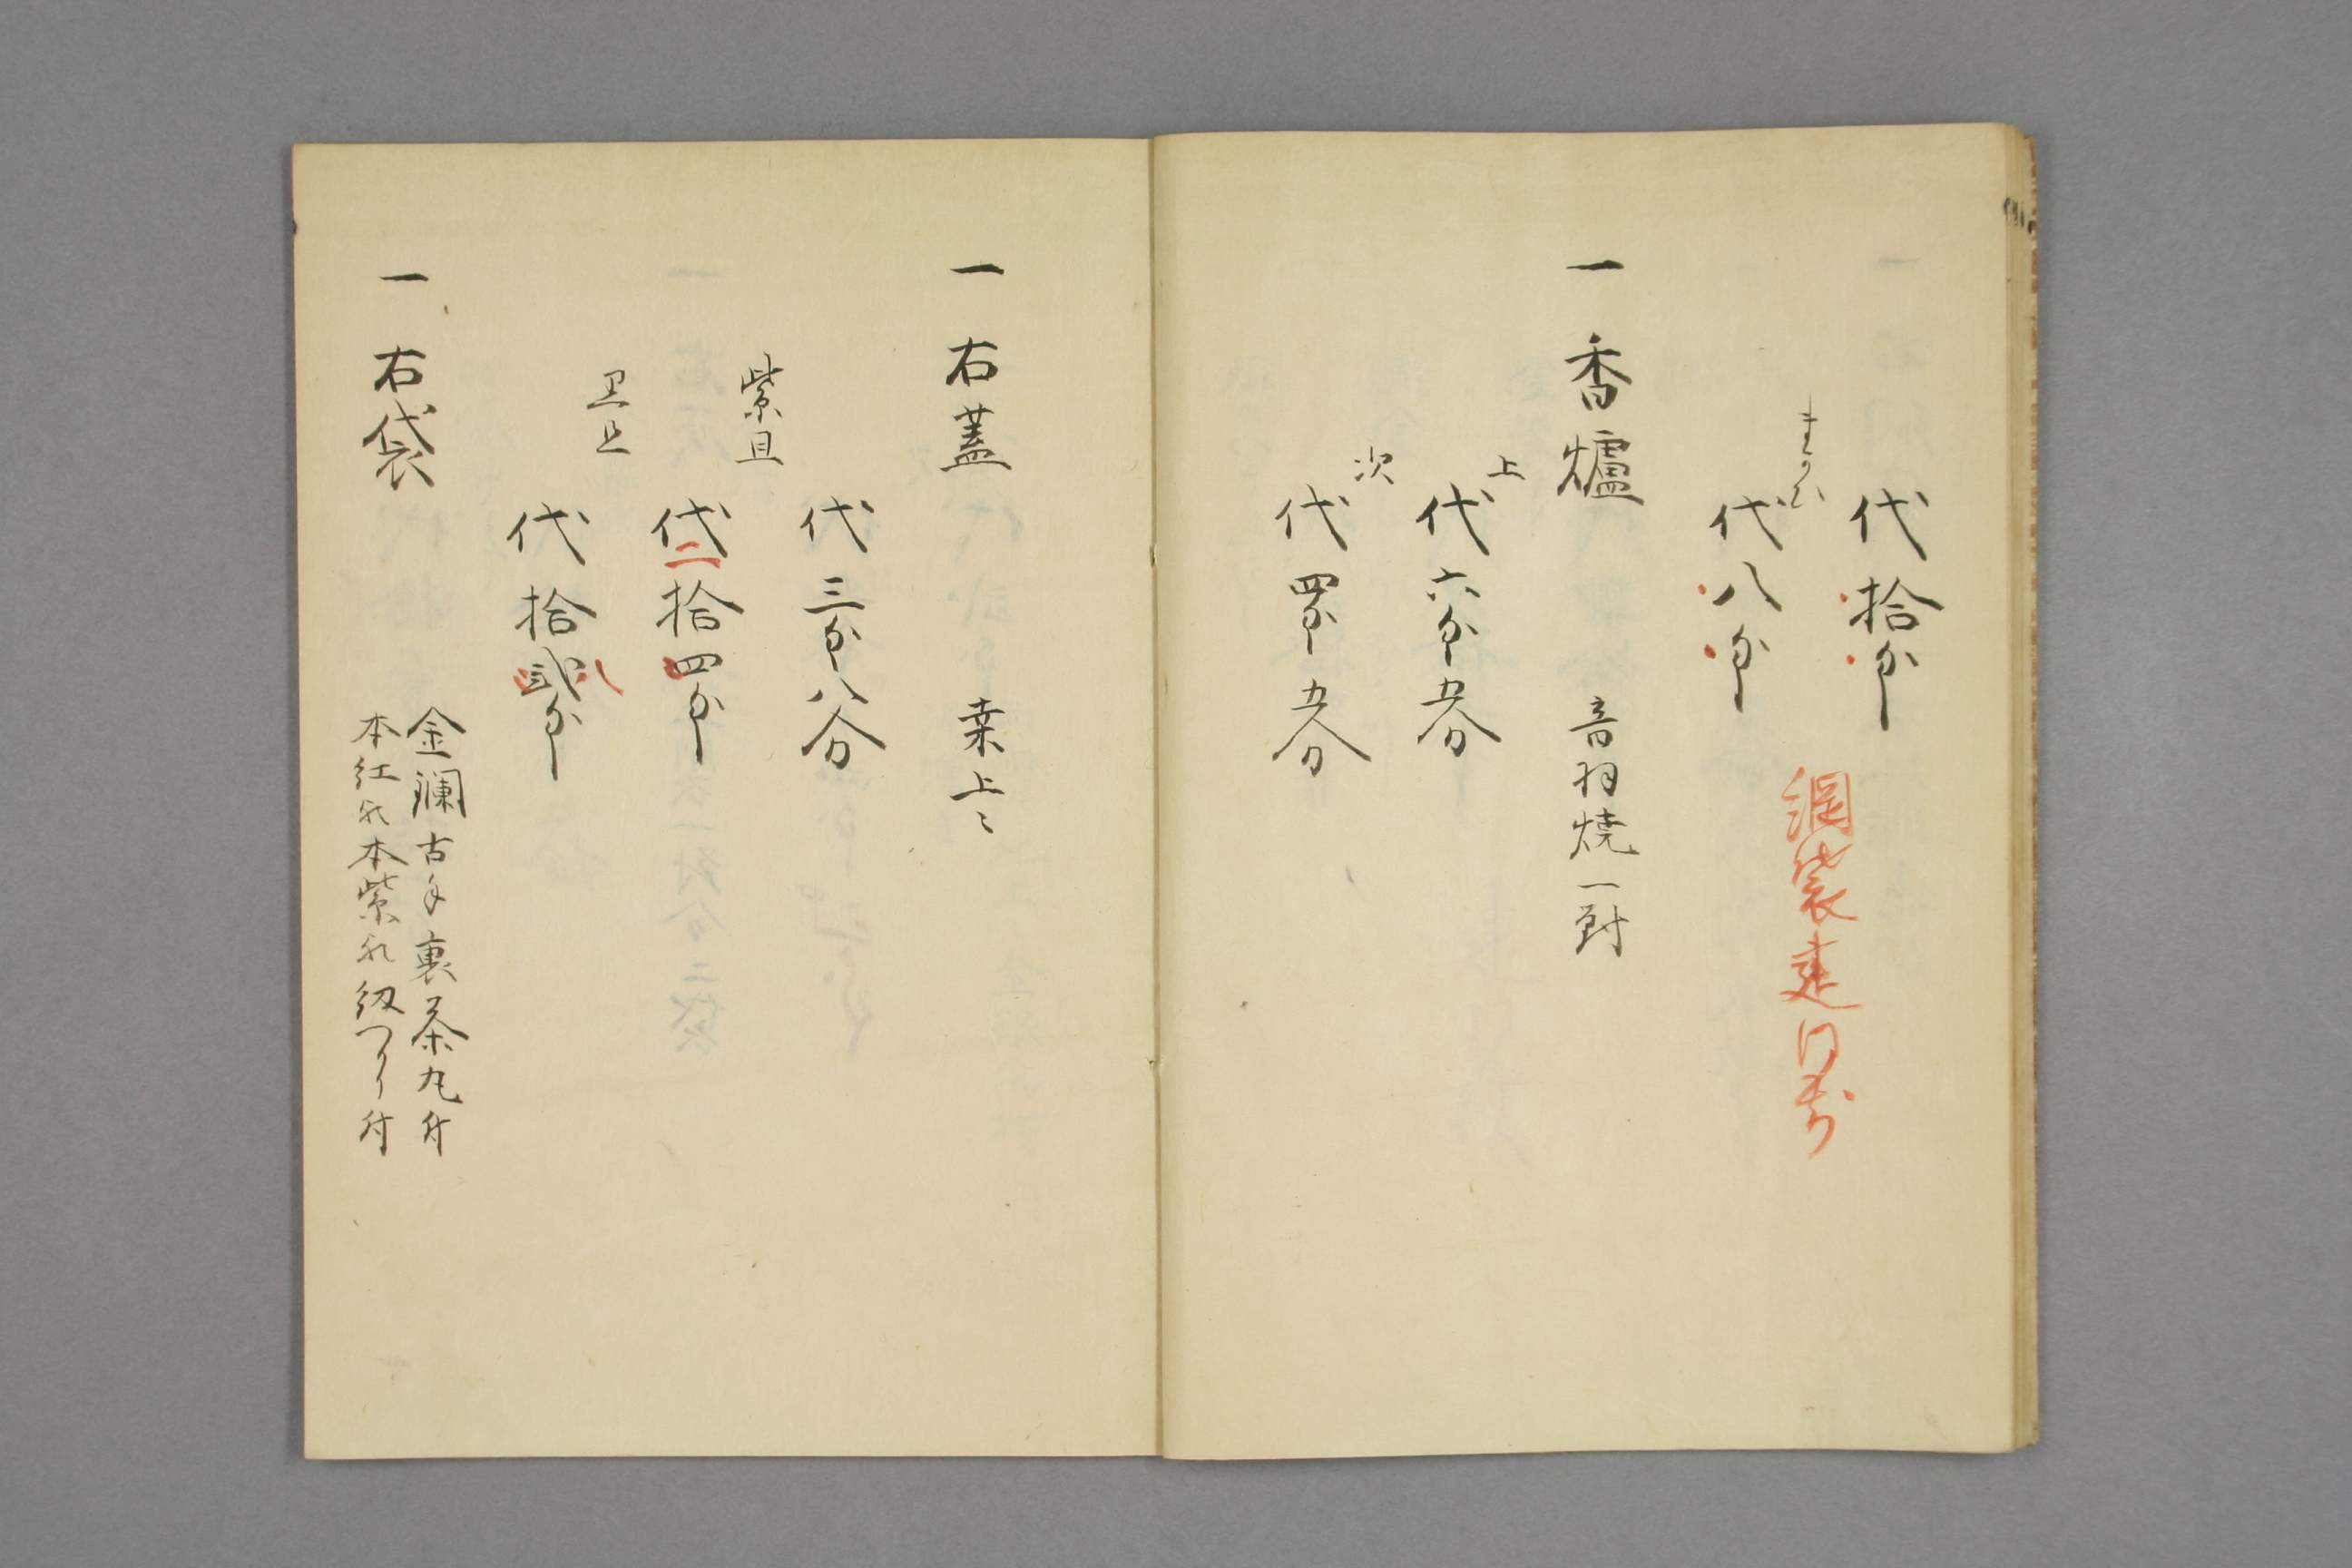 代拾匁
まかひ
代八匁
網袋建門前
一香爐　音羽焼一對
上
代六匁五分
次
代四匁五分
一右蓋　桒上々
代三匁八分
紫且
代二拾四匁
黒且
代拾弐匁
一右袋
金襴古手裏茶丸付
本紅糸本紫糸級つかり付